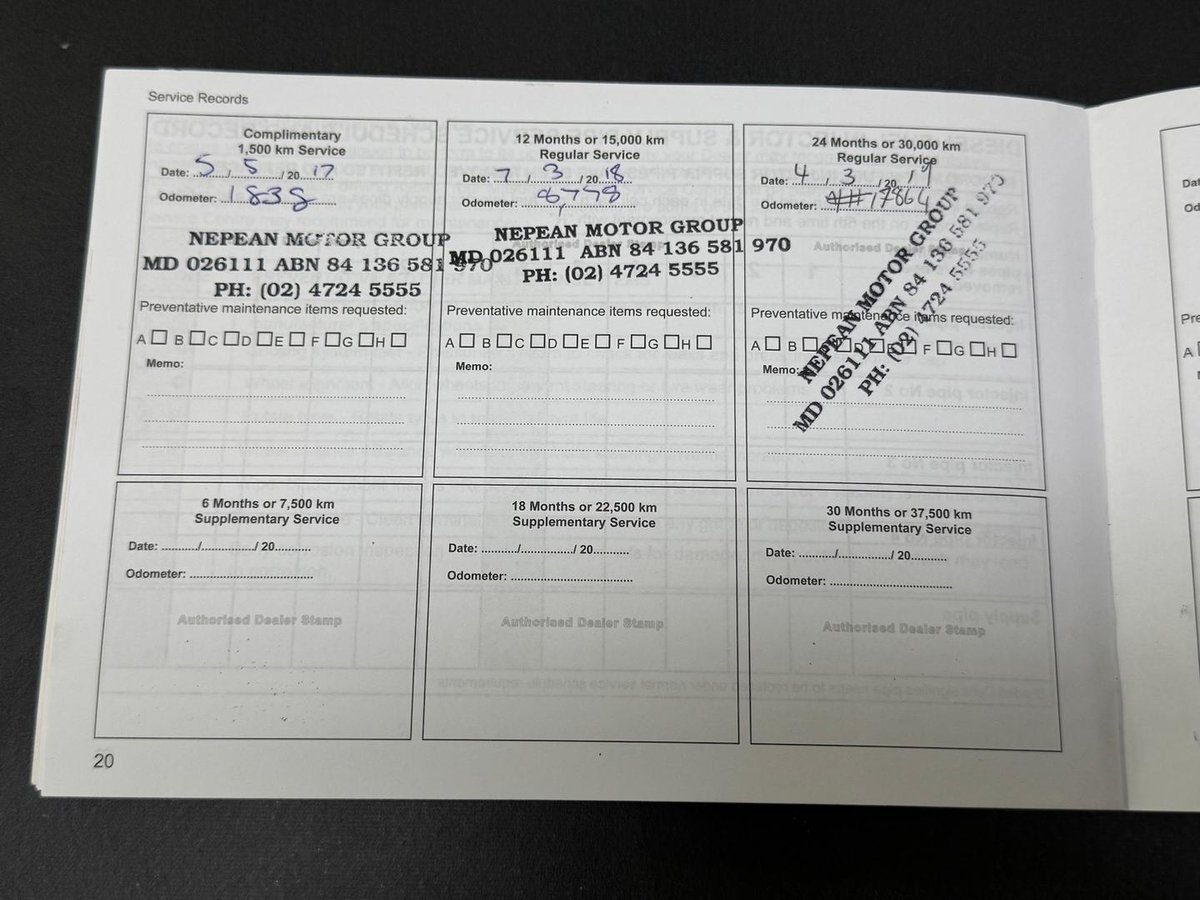 Service Records
Complimentary
1,500 km Service
Date: 5 / 5 / 20 17
Odometer: 1838
NEPEAN MOTOR GROUP
MD 026111 ABN 84 136 581 970
PH: (02) 4724 5555
Preventative maintenance items requested:
A B C D E F G H
Memo:
12 Months or 15,000 km
Regular Service
Date: 7 / 3 / 20 18
Odometer: 8778
NEPEAN MOTOR GROUP
MD 026111 ABN 84 136 581 970
PH: (02) 4724 5555
Preventative maintenance items requested:
A B C D E F G H
Memo:
24 Months or 30,000 km
Regular Service
Date: 4 / 3 / 20 19
Odometer: 17864
Authorised Dealer
NEPEAN MOTOR GROUP
MD 026111 ABN 84 136 581 970
PH: (02) 4724 5555
Preventative maintenance items requested:
A B C D E F G H
Memo:
6 Months or 7,500 km
Supplementary Service
Date: ........../................/ 20...........
Odometer: .....................................
Authorised Dealer Stamp
18 Months or 22,500 km
Supplementary Service
Date: ........../................/ 20...........
Odometer: .....................................
Authorised Dealer Stamp
30 Months or 37,500 km
Supplementary Service
Date: ........../................/ 20...........
Odometer: .....................................
Authorised Dealer Stamp
20